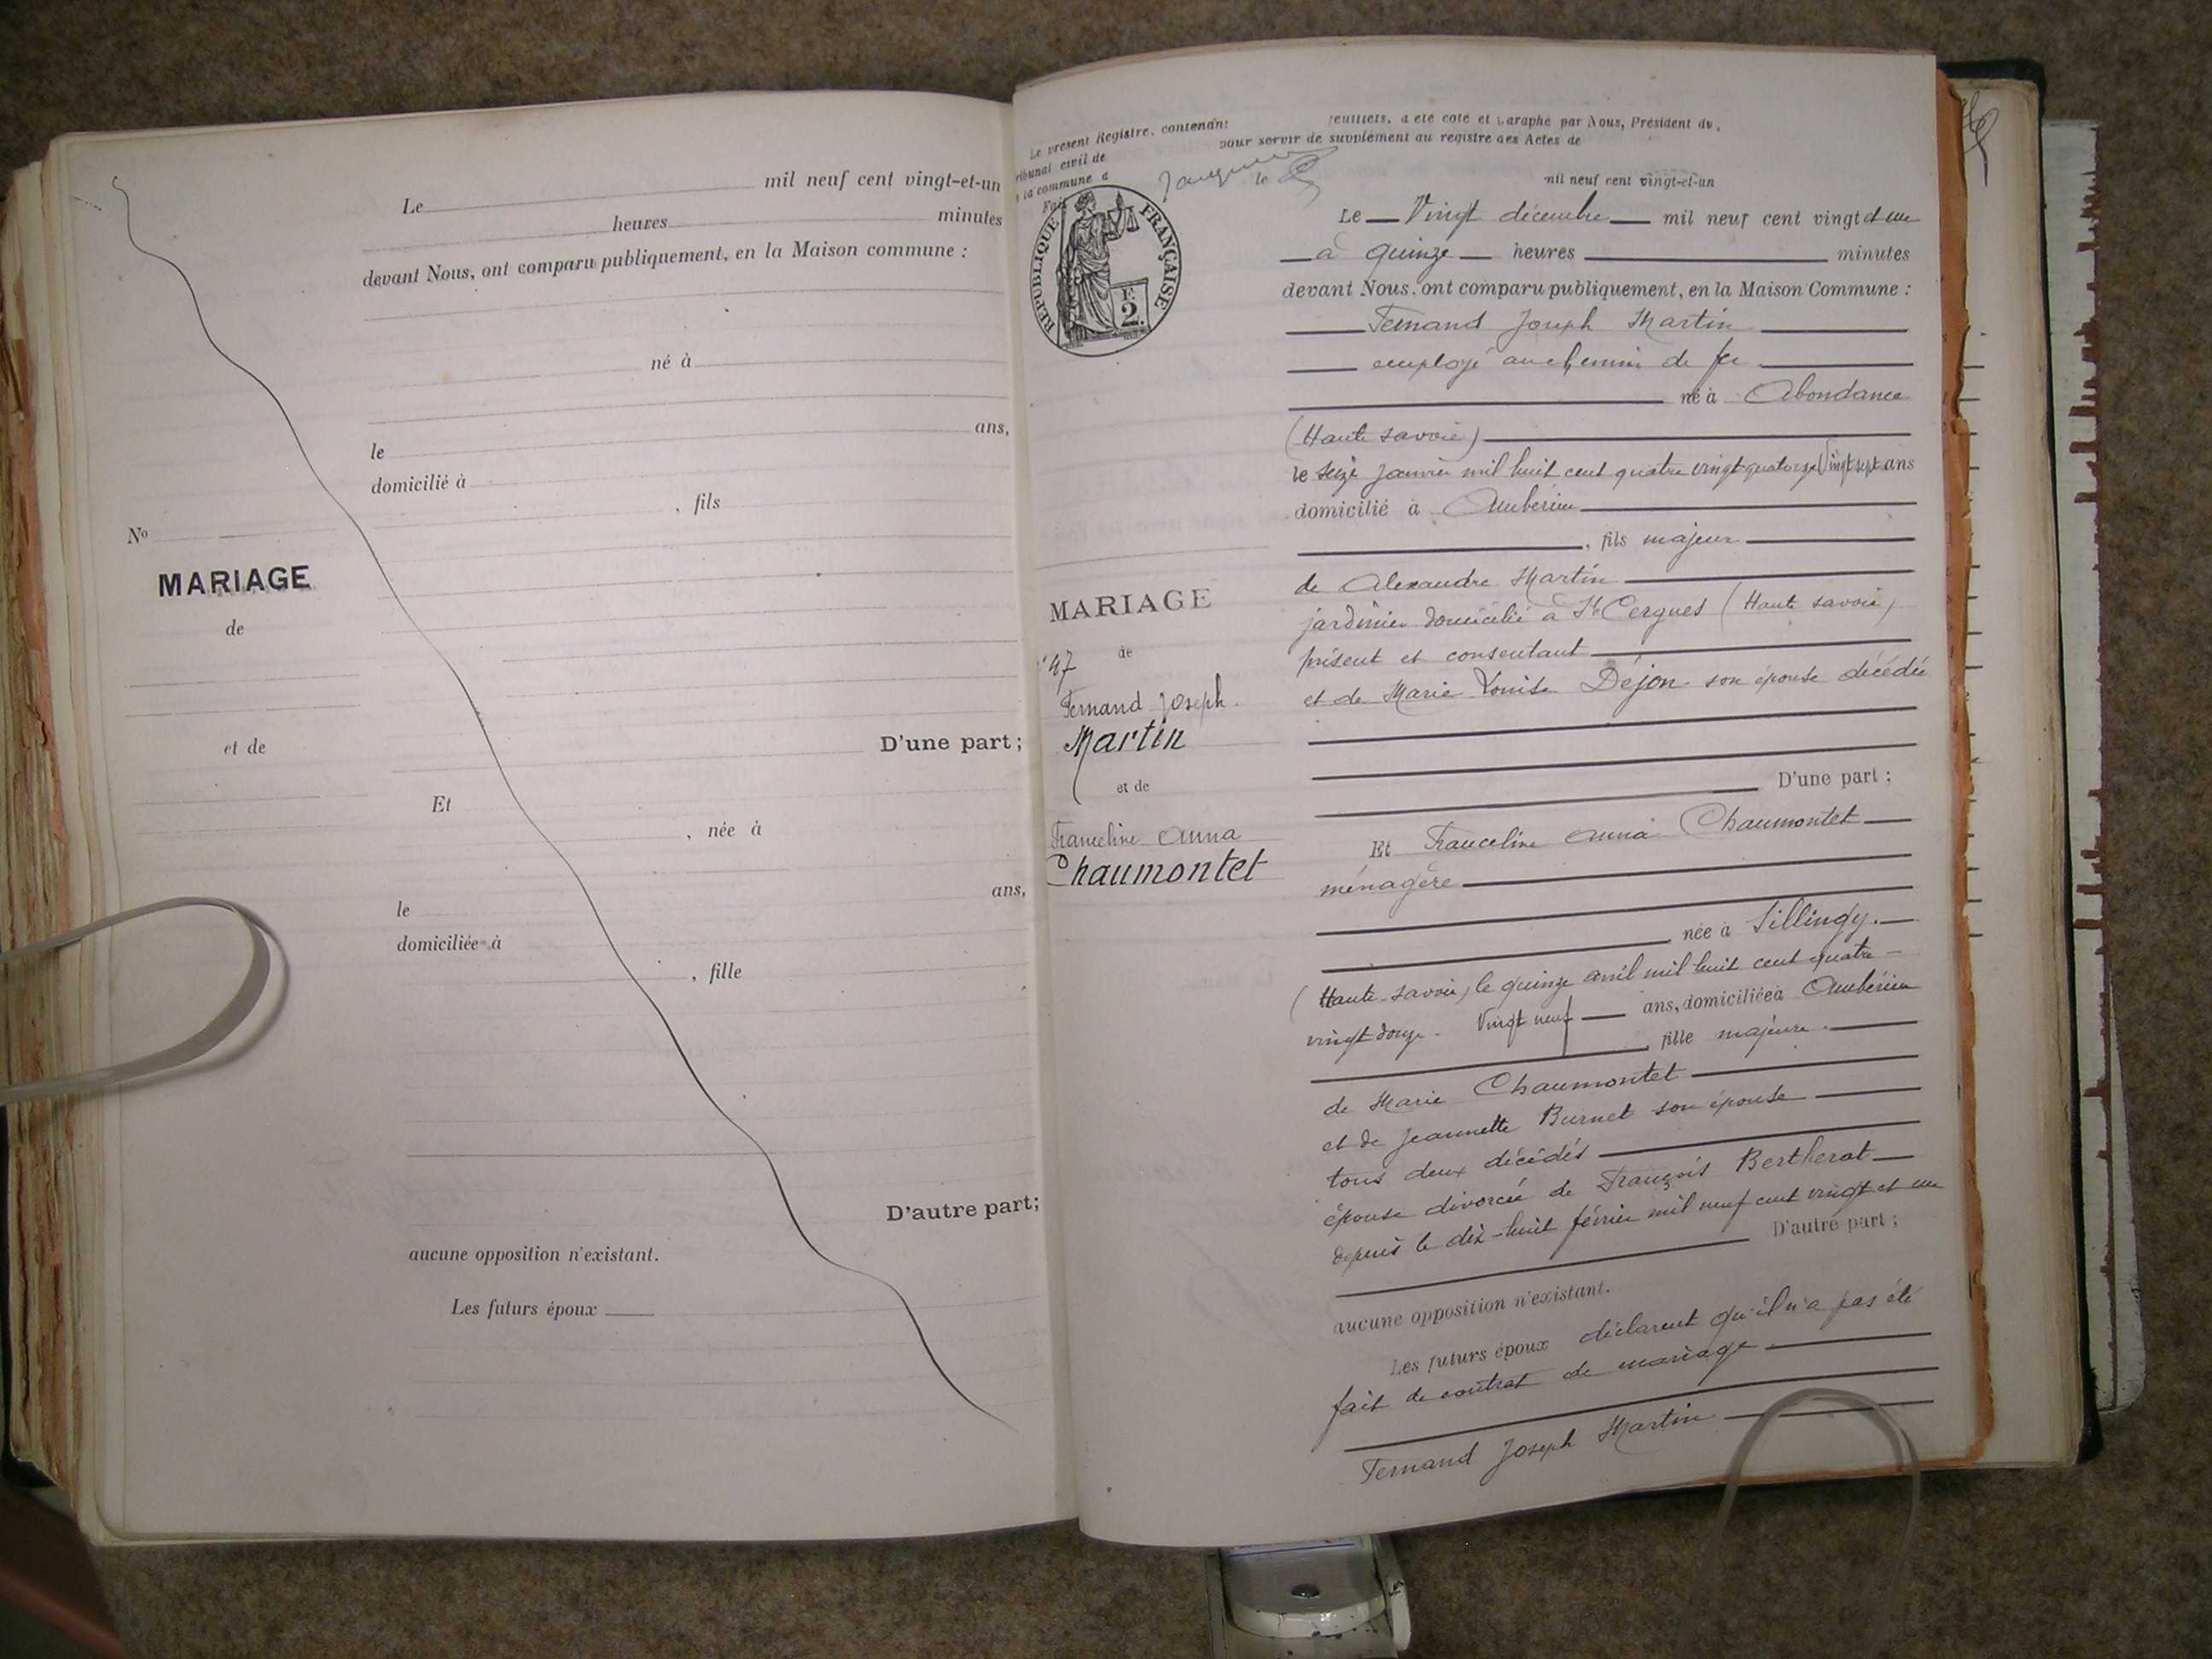 Le mil neuf cent vingt-et-un
heures minutes
devant Nous, ont comparu publiquement, en la Maison commune :
né à
le ans,
domicilié à
, fils
No
MARIAGE
de
et de
D'une part ;
Et
, née à
le ans,
domiciliée à
, fille
D'autre part;
aucune opposition n'existant.
Les futurs époux
Le présent Registre, contenant feuillets, a été coté et paraphé par Nous, Président du
tribunal civil de pour servir de supplément au registre des Actes de
la commune d
Fait le mil neuf cent vingt-et-un
RÉPUBLIQUE FRANÇAISE
2
Le Vingt décembre mil neuf cent vingt et un
à quinze heures minutes
devant Nous, ont comparu publiquement, en la Maison Commune :
Fernand Joseph Martin
employé au chemin de fer
né à Abondance
(Haute savoie)
le seize janvier mil huit cent quatre vingt quatorze Vingt sept ans
domicilié à Ambérieu
, fils majeur
de Alexandre Martin
jardinier domicilié à St Cergues (Haute savoie)
présent et consentant
et de Marie Louise Déjon son épouse décédée
D'une part ;
MARIAGE
47 de
Fernand Joseph
Martin
et de
Franceline Anna
Chaumontet
Et Franceline Anna Chaumontet
ménagère
née à Sillingy.
(Haute-savoie) le quinze avril mil huit cent quatre-
vingt douze. Vingt neuf ans, domiciliée à Ambérieu
, fille majeure.
de Marie Chaumontet
et de Jeannette Burnet son épouse
tous deux décédés
épouse divorcée de François Bertherat
depuis le dix-huit février mil neuf cent vingt et un
D'autre part ;
aucune opposition n'existant.
Les futurs époux déclarent qu'il n'a pas été
fait de contrat de mariage.
Fernand Joseph Martin